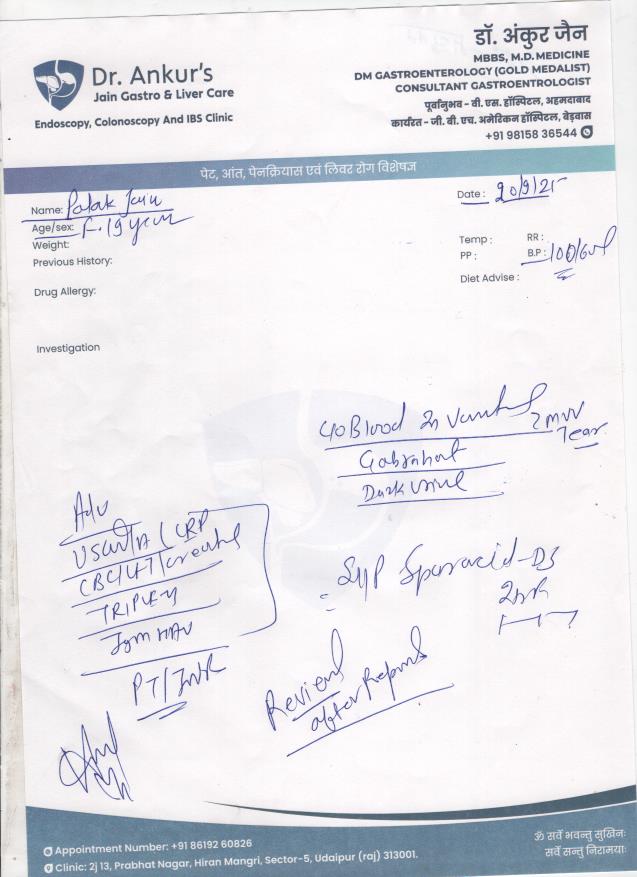 डॉ. अंकुर जैन
MBBS, M.D. MEDICINE
DM GASTROENTEROLOGY (GOLD MEDALIST)
CONSULTANT GASTROENTROLOGIST
पूर्वानुभव - वी. एस. हॉस्पिटल, अहमदाबाद
कार्यरत - जी. बी. एच. अमेरिकन हॉस्पिटल, बेड़वास
+91 98158 36544
Dr. Ankur's
Jain Gastro & Liver Care
Endoscopy, Colonoscopy And IBS Clinic
पेट, आंत, पेनक्रियास एवं लिवर रोग विशेषज्ञ
Name: Palak Jain
Date: 20/9/25
Age/sex: F. 19 year
Weight:
Temp :
RR :
Previous History:
PP :
B.P : 100/
Diet Advise :
Drug Allergy:
Investigation
Blood in
Dark urine
Adv
CRP
CBC/LFT/
TRIPLE-
IgM HAV
PT/INR
Syp
Review
after Reports
Appointment Number: +91 86192 60826
Clinic: 2j 13, Prabhat Nagar, Hiran Mangri, Sector-5, Udaipur (raj) 313001.
ॐ सर्वे भवन्तु सुखिनः
सर्वे सन्तु निरामयाः